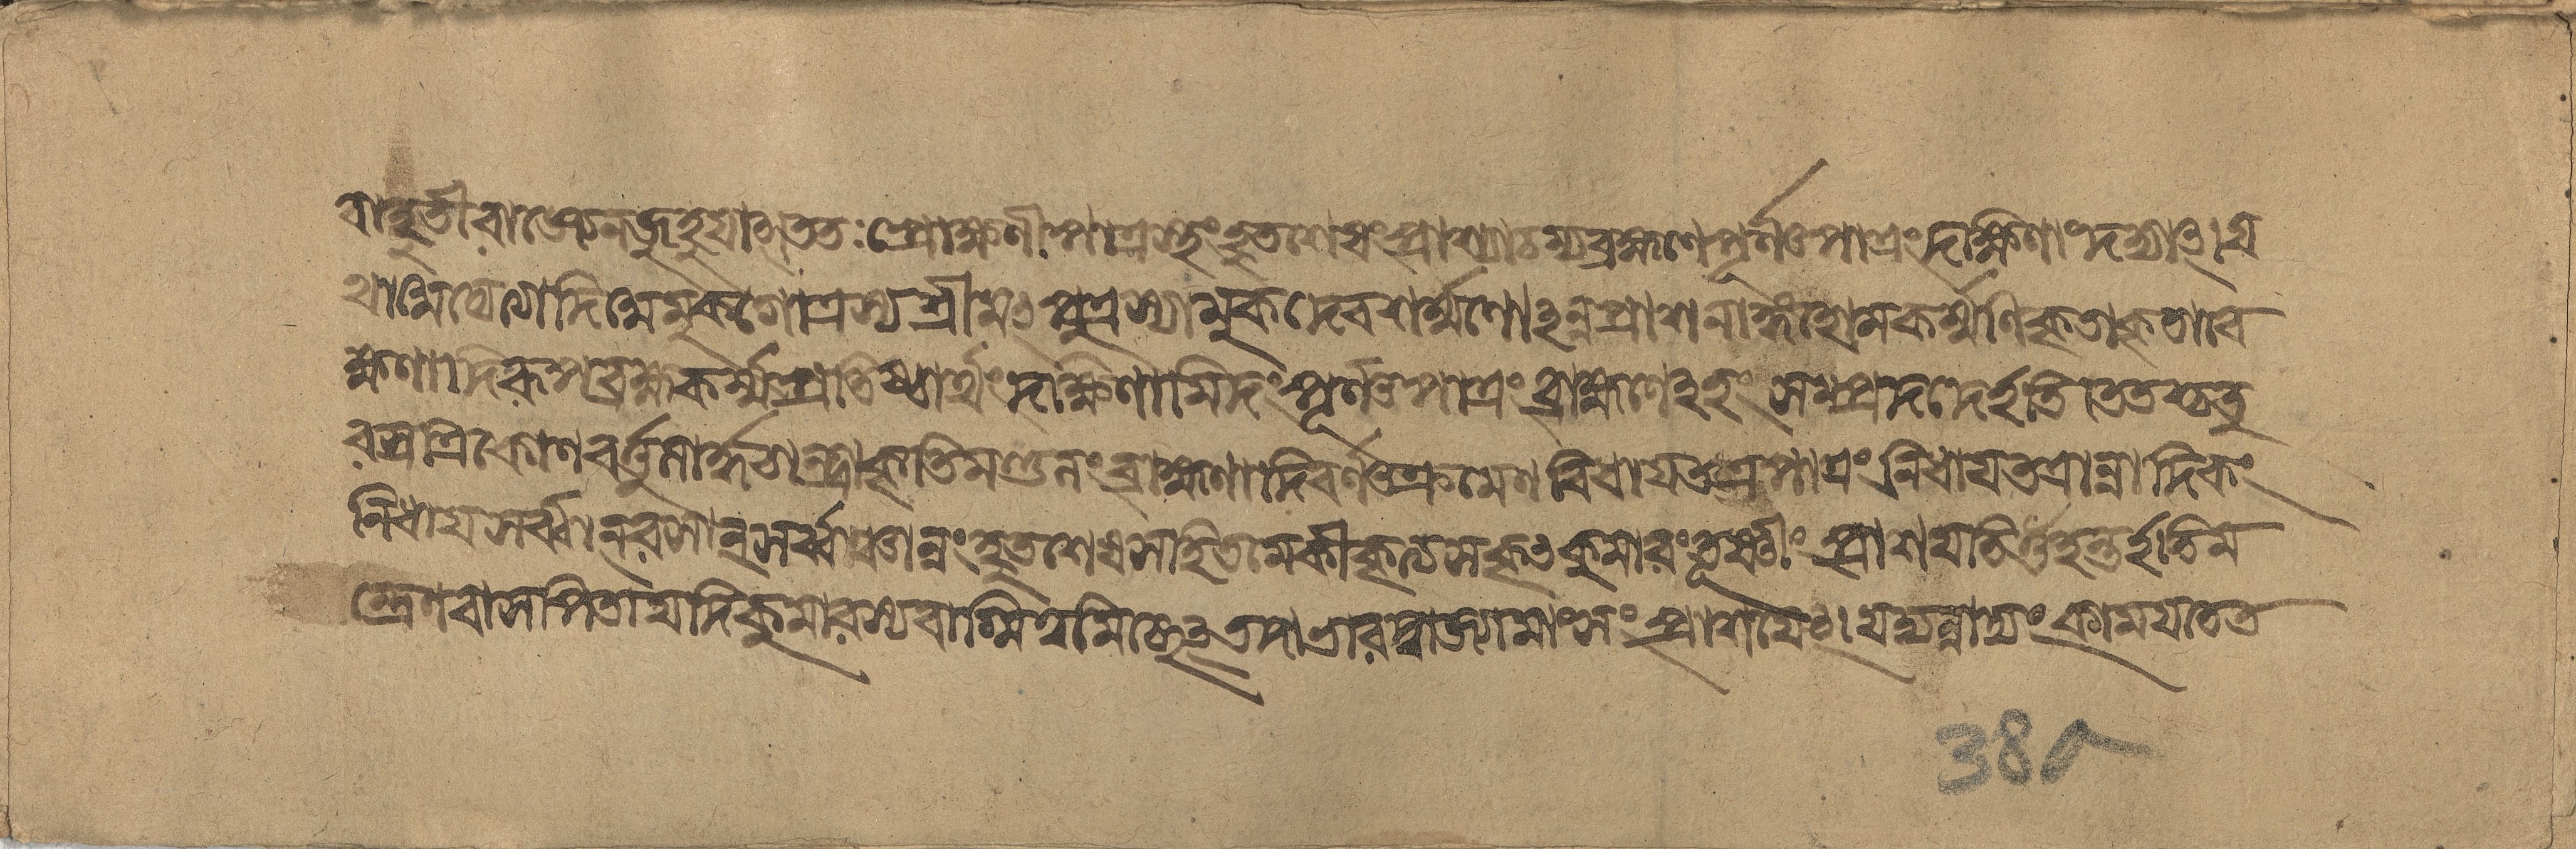 রাহুতীরাজ্যেনজুহুয়াৎ।ততঃপ্রোক্ষণীপাত্রস্থংহুতশেষংপ্রাশ্যাচম্যব্রহ্মণেপূর্ণপাত্রংদক্ষিণাংদদ্যাৎ।
দিঅমুকগোত্রস্যশ্রীমৎপুত্রস্যামুকদেবশর্ম্মণোঽন্নপ্রাশনাঙ্গহোমকর্ম্মণিকৃতাকৃতাবে
ক্ষণাদিরূপব্রহ্মকর্ম্মপ্রতিষ্ঠার্থংদক্ষিণামিদংপূর্ণপাত্রংব্রাহ্মণেঽহংসম্প্রদদেইতি।ততশ্চতু
রস্রত্রিকোণবর্ত্তুলার্দ্ধচন্দ্রাকৃতিমণ্ডলংব্রাহ্মণাদিবর্ণক্রমেণবিধায়তত্রপাত্রংনিধায়তত্রান্নাদিকং
নিধায়সর্ব্বান্‌রসান্‌সর্ব্বমন্নংহুতশেষসহিতমেকীকৃত্যসকৃৎকুমারংতূষ্ণীংপ্রাশয়তিহন্তইতিম
ন্ত্রেণবাসপিতাযদিকুমারস্যবাগ্মিত্বমিচ্ছেৎতদাভারদ্বাজ্যামাংসংপ্রাশয়েৎ।যদ্যন্নাদ্যংকাময়তেত